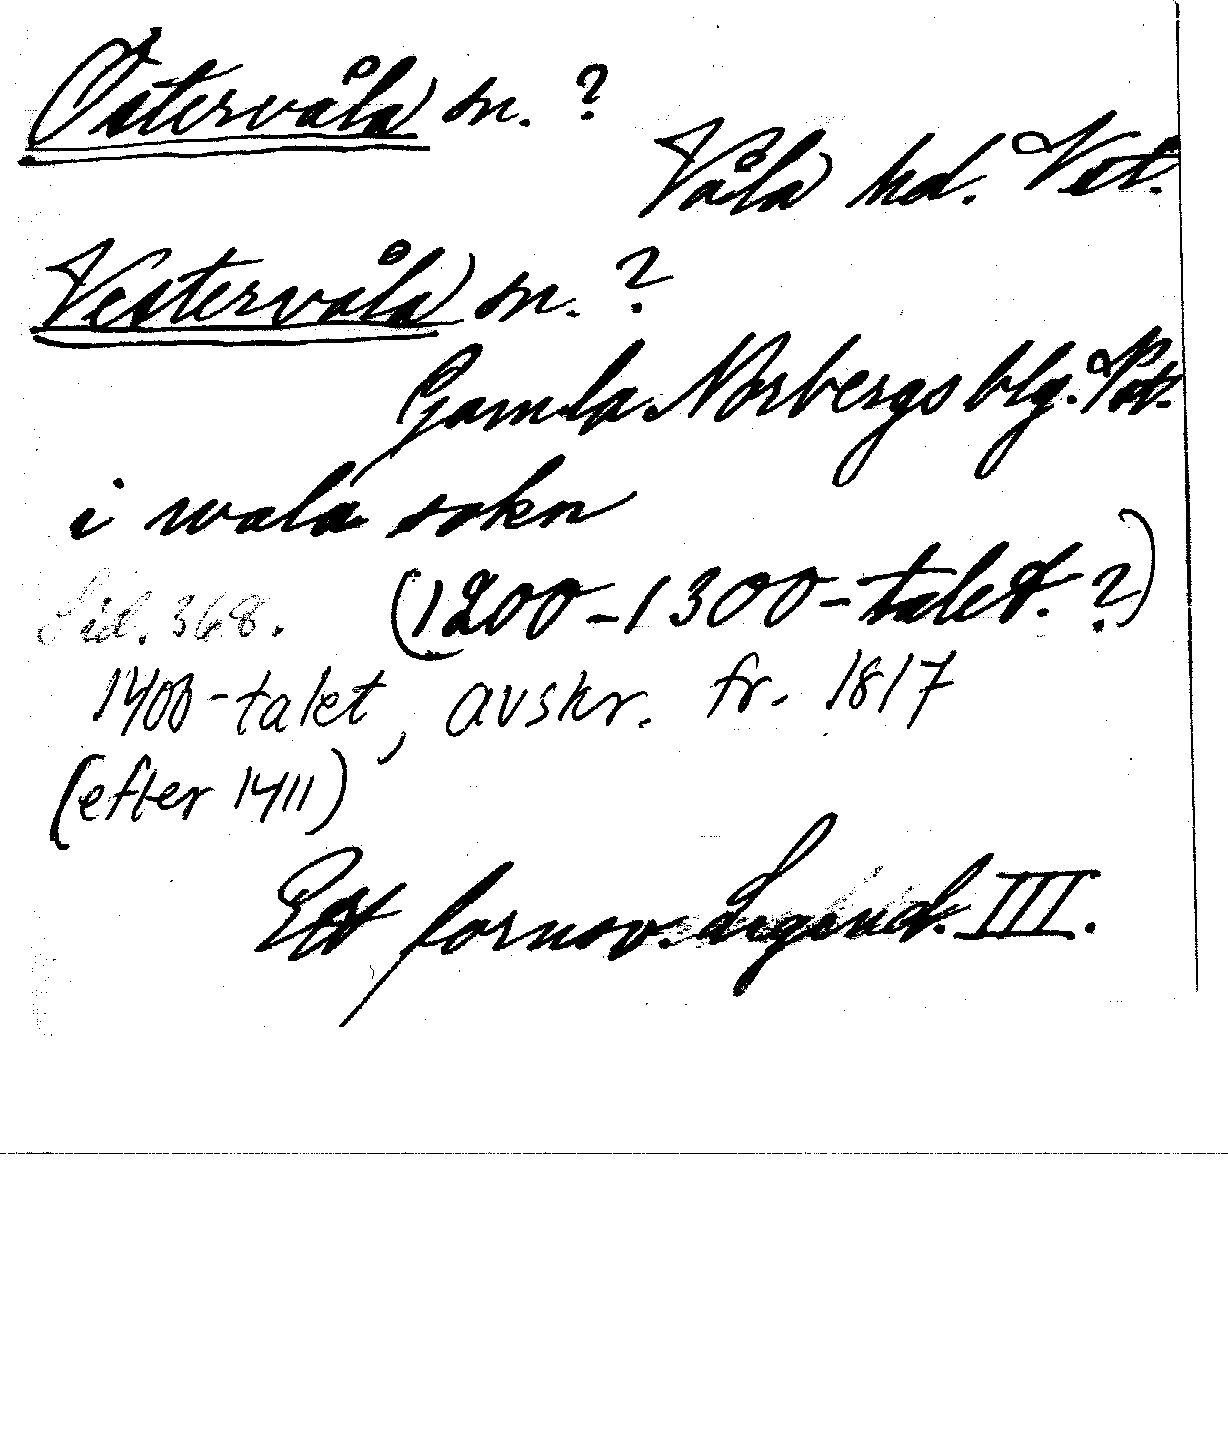 Östervåla sn. ?
Våla hd. Vst.
Vestervåla sn. ?
Gamla Norbergs blg. Vst.
i wala sokn
Sid. 368. (1200-1300-talet. ?)
1400-talet, avskr. fr. 1817
(efter 1411)
Ett fornsv. Legend. III.